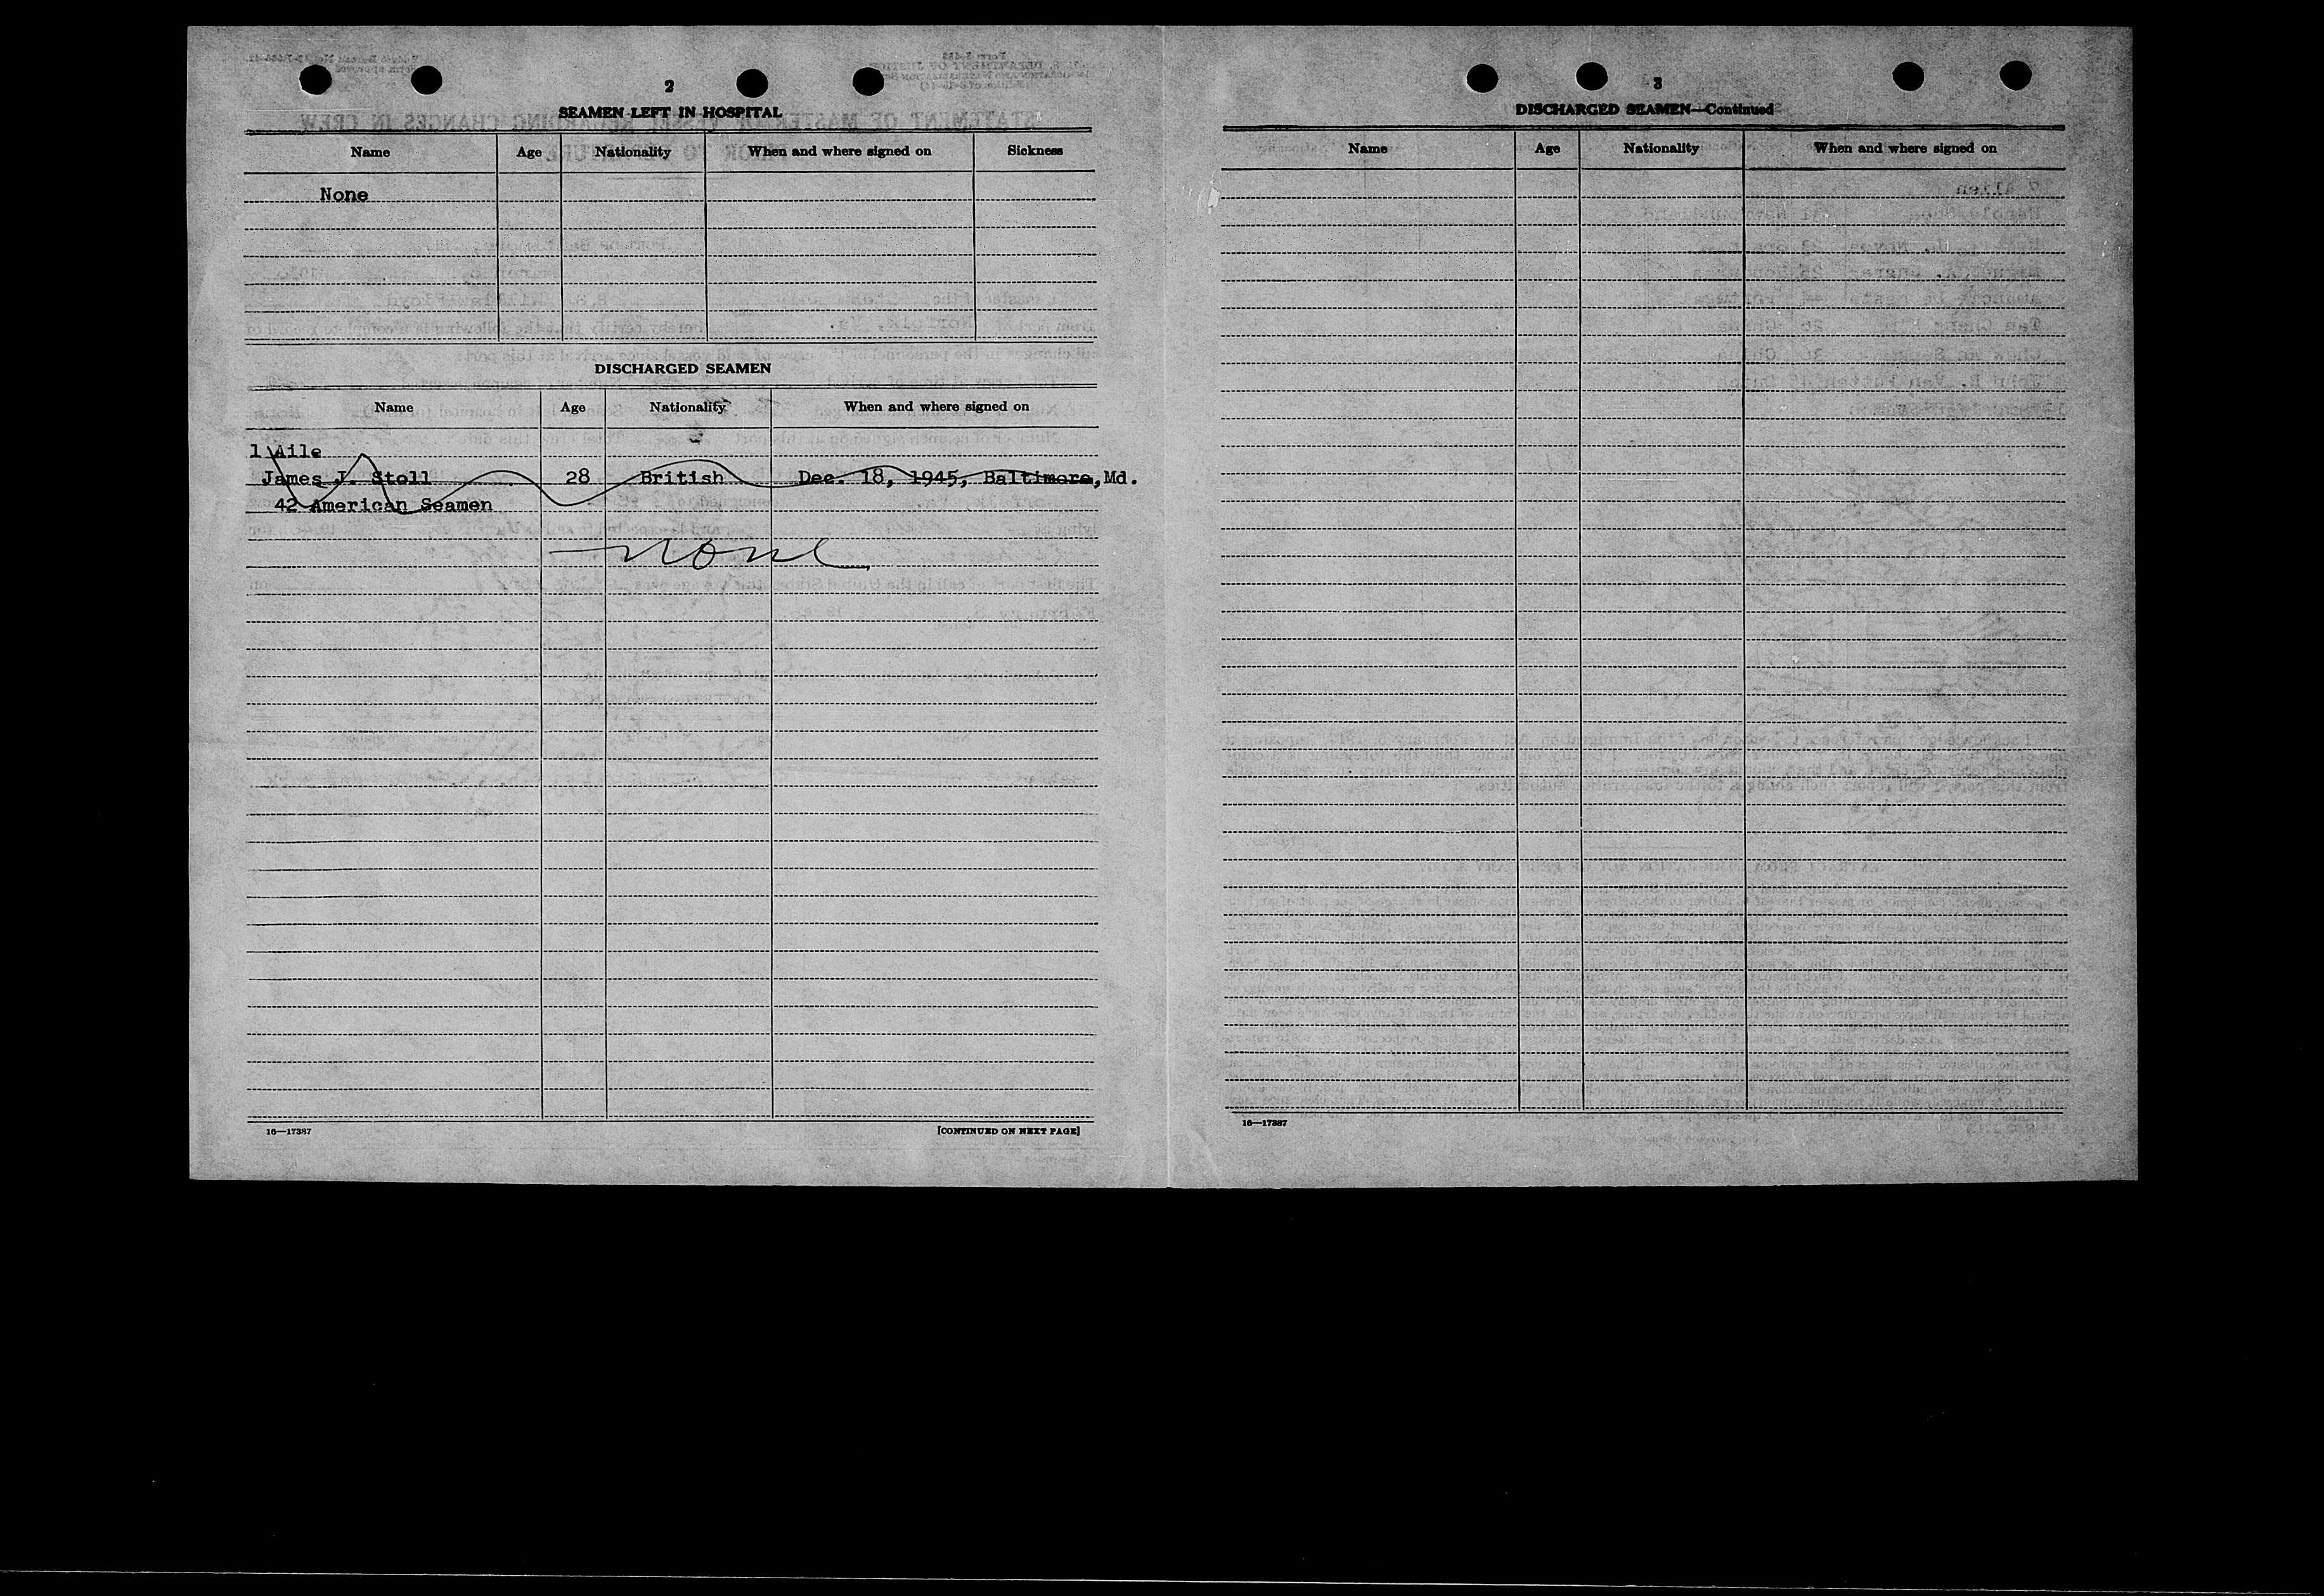 2
SEAMEN LEFT IN HOSPITAL
Name Age Nationality When and where signed on Sickness
None
DISCHARGED SEAMEN
Name Age Nationality When and where signed on
1 Aile
James J. Stoll 28 British Dec. 18, 1945, Baltimore, Md.
42 American Seamen
none
16—17387 [CONTINUED ON NEXT PAGE]
3
DISCHARGED SEAMEN—Continued
Name Age Nationality When and where signed on
16—17387